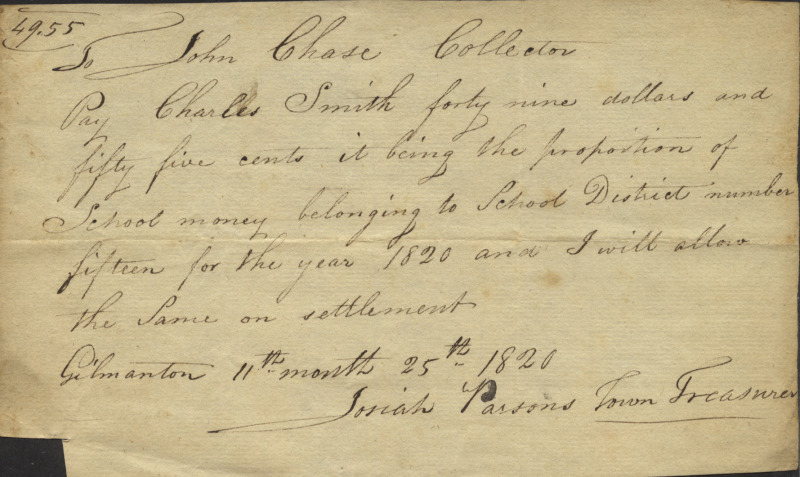 49.55
To John Chase Collector
Pay Charles Smith forty nine dollars and
fifty five cents it being the proportion of
School money belonging to School District number
fifteen for the year 1820 and I will allow
the Same on settlement
Gilmanton 11th month 25th 1820
Josiah Parsons Town Treasurer